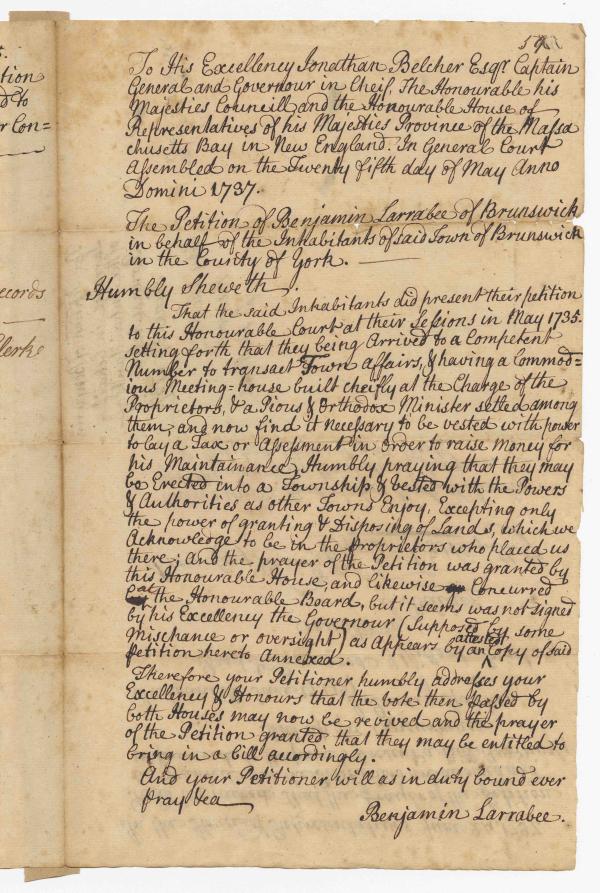 5.
tion
d to
r Con=
ecords
Clerke
59
To His Excellency Jonathan Belcher Esqr. Captain
General and Governour in Cheif, The Honourable his
Majesties Councill and the Honourable House of
Representatives of his Majesties Province of the Massa
chusetts Bay in New England. In General Court
Assembled on the Twenty fifth day of May Anno
Domini 1737.
The Petition of Benjamin Larrabee of Brunswick
in behalf of the Inhabitants of said Town of Brunswick
in the County of York.
Humbly Sheweth.
That the said Inhabitants did present their petition
to this Honourable Court at their Sessions in May 1735.
setting forth that they being Arrived to a Competent
Number to transact Town Affairs, & having a Commod=
ious Meeting=house built cheifly at the Charge of the
Proprietors, & a Pious & Orthodox Minister setled among
them, and now find it necessary to be vested with power
to lay a Tax or Assessment in order to raise Money for
his Maintainance, Humbly praying that they may
be Erected into a Township & vested with the Powers
& Authorities as other Towns Enjoy, Excepting only
the power of granting & Disposing of Lands, which we
Acknowledge to be in the Proprietors who placed us
there; And the prayer of the Petition was granted by
this Honourable House, and likewise Concurred
at the Honourable Board, but it seems was not signed
by his Excellency the Governour (Supposed by some
Mischance or oversight) as Appears by an attested Copy of said
Petition hereto Annexed.
Therefore your Petitioner humbly addresses your
Excellency & Honours that the vote then passed by
both Houses may now be revived and the prayer
of the Petition granted that they may be entitled to
bring in a bill accordingly.
And your Petitioner will as in duty bound ever
Pray &ca
Benjamin Larrabee.